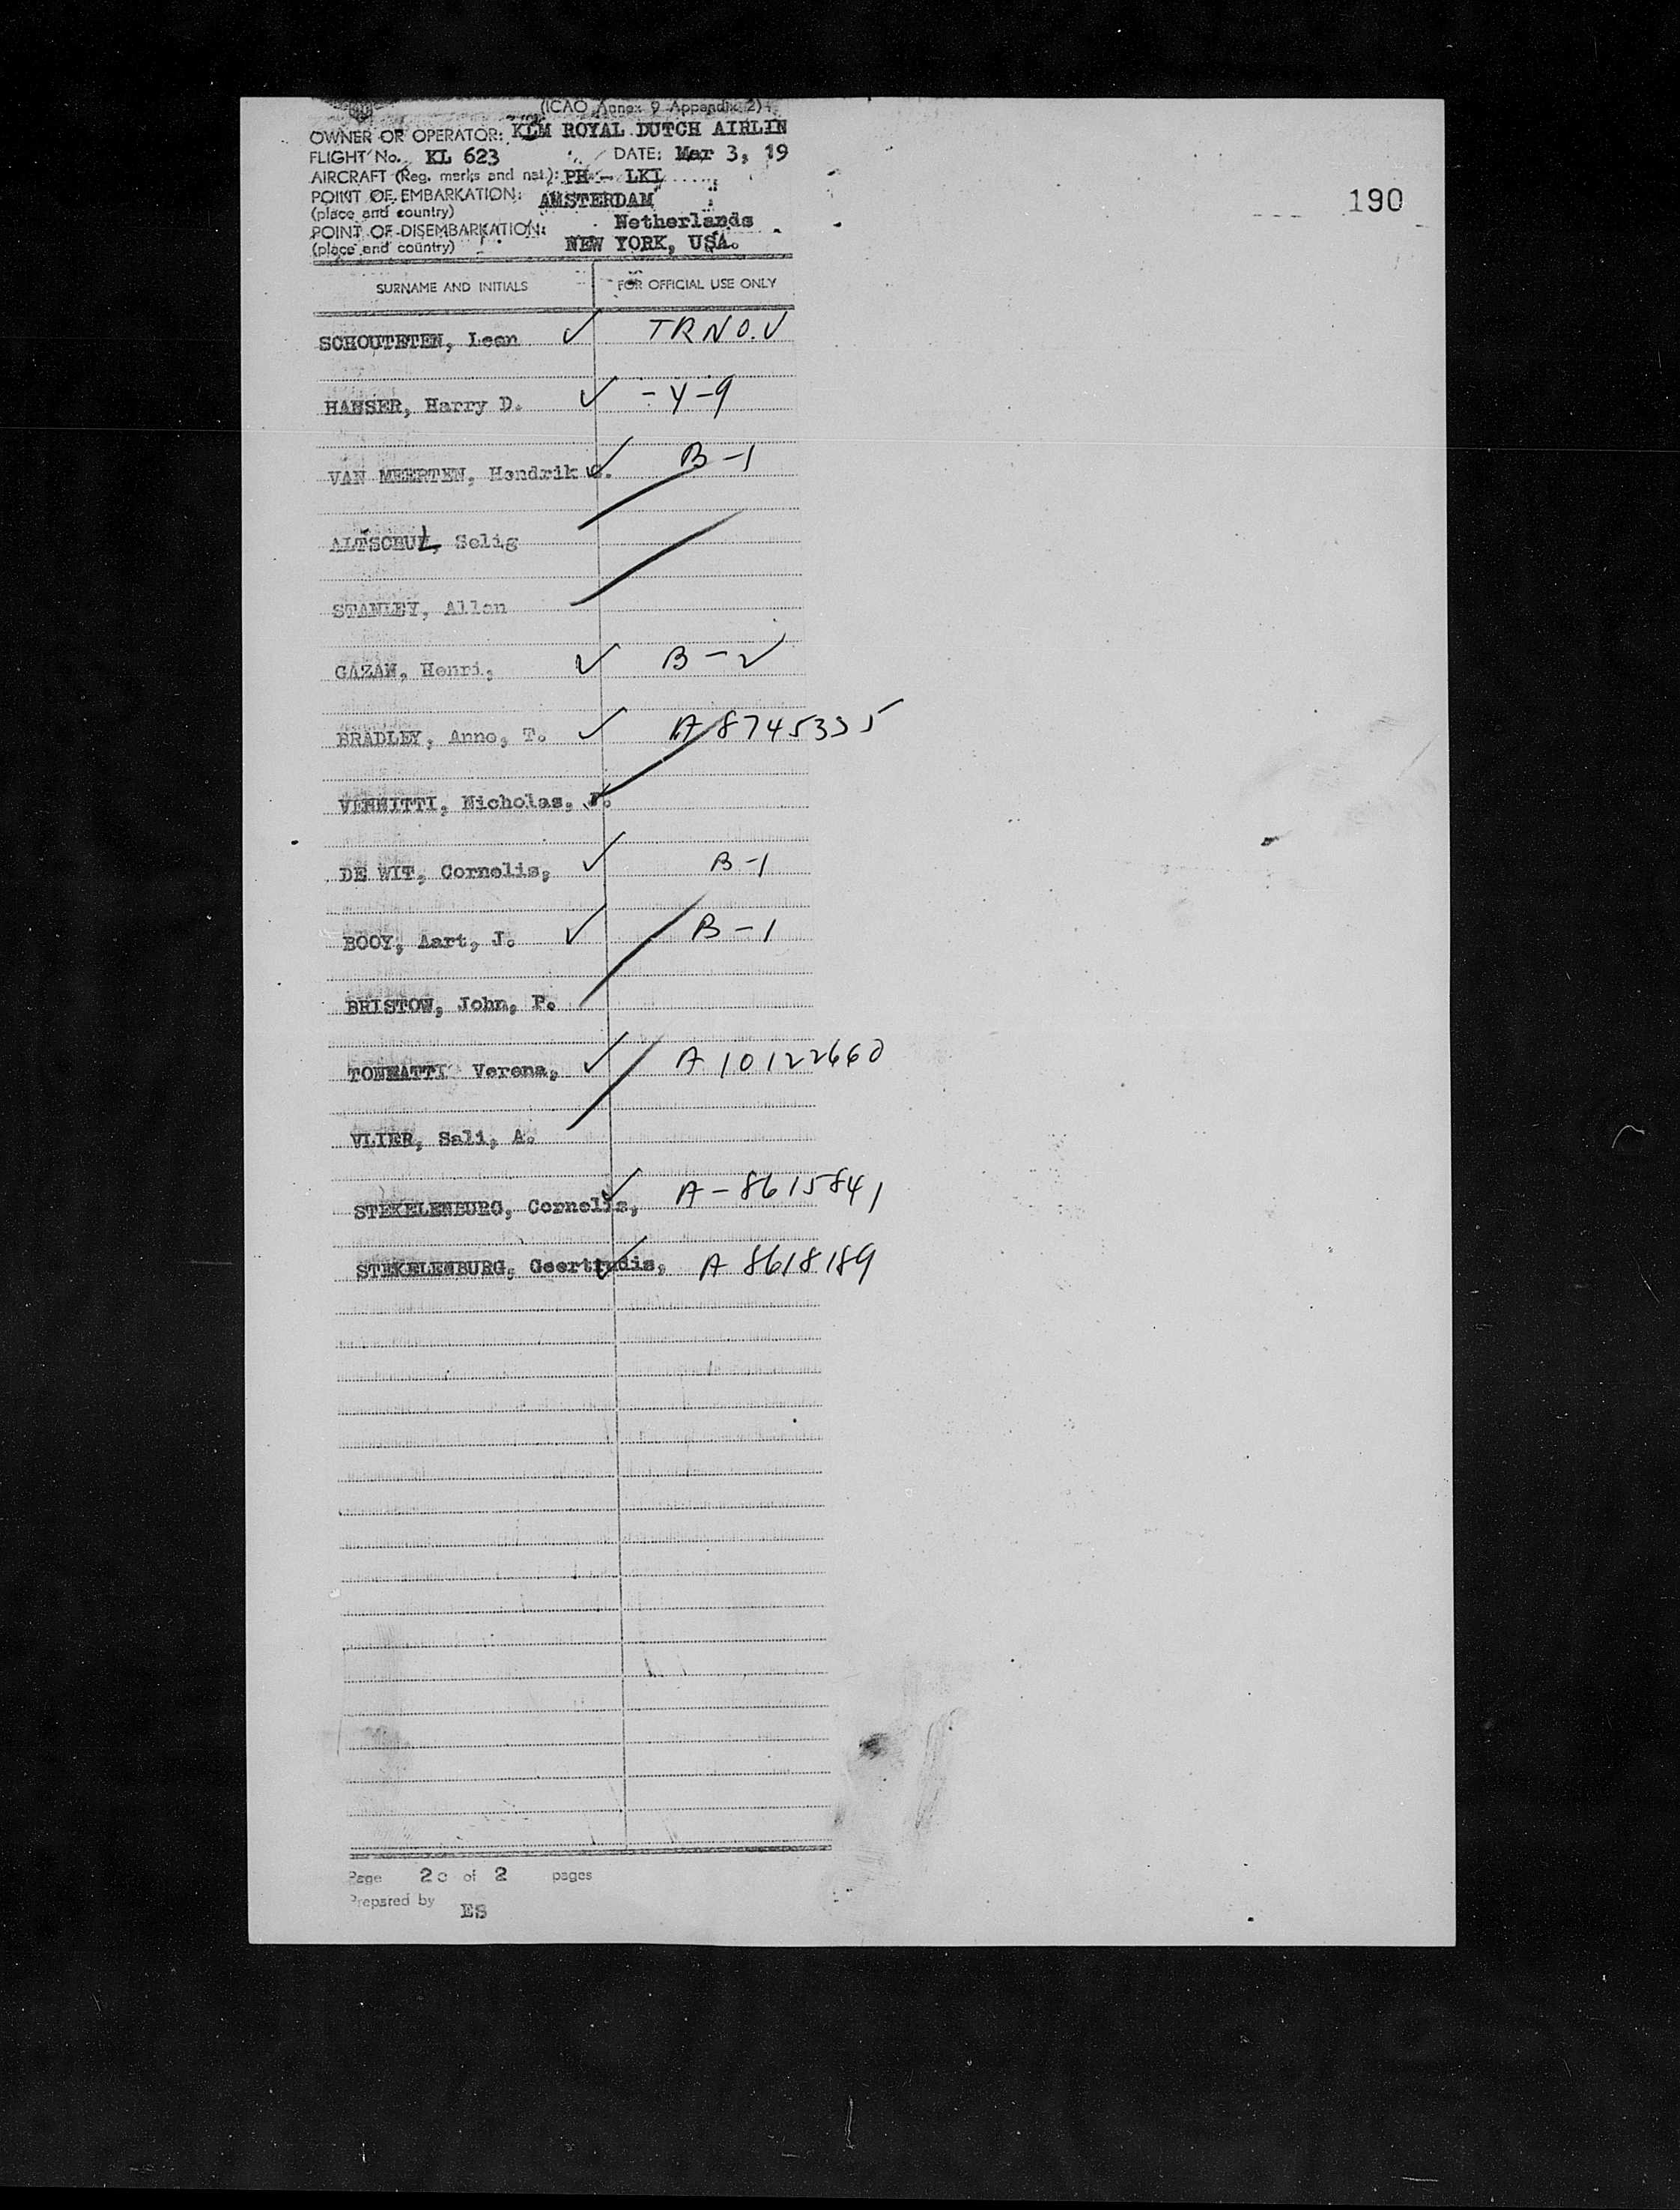 (ICAO Annex 9 Appendix 2)
OWNER OR OPERATOR: KLM ROYAL DUTCH AIRLIN
FLIGHT No. KL 623 DATE: Mar 3, 19
AIRCRAFT (Reg. marks and nat.): PH - LKI
POINT OF EMBARKATION: AMSTERDAM
(place and country) Netherlands
POINT OF DISEMBARKATION:
(place and country) NEW YORK, USA.
190
SURNAME AND INITIALS FOR OFFICIAL USE ONLY
SCHOUTETEN, Leon ✓ TRNO.V
HANSER, Harry D. ✓ - Y - 9
VAN MEERTEN, Hendrik ✓ B-1
ALTSCHUL, Selig
STANLEY, Allen
GAZAN, Henri, ✓ B-2
BRADLEY, Anne, T. ✓ A 8745335
Nicholas,
DE WIT, Cornelis, ✓ B-1
BOOY, Aart, J. ✓ B-1
BRISTOW, John, P.
Verena, ✓ A 10122660
VLIER, Sali, A.
STEKELENBURG, Cornelis, ✓ A-8615841
STEKELENBURG, Geertrudis, ✓ A 8618189
Page 2 of 2 pages
Prepared by ES